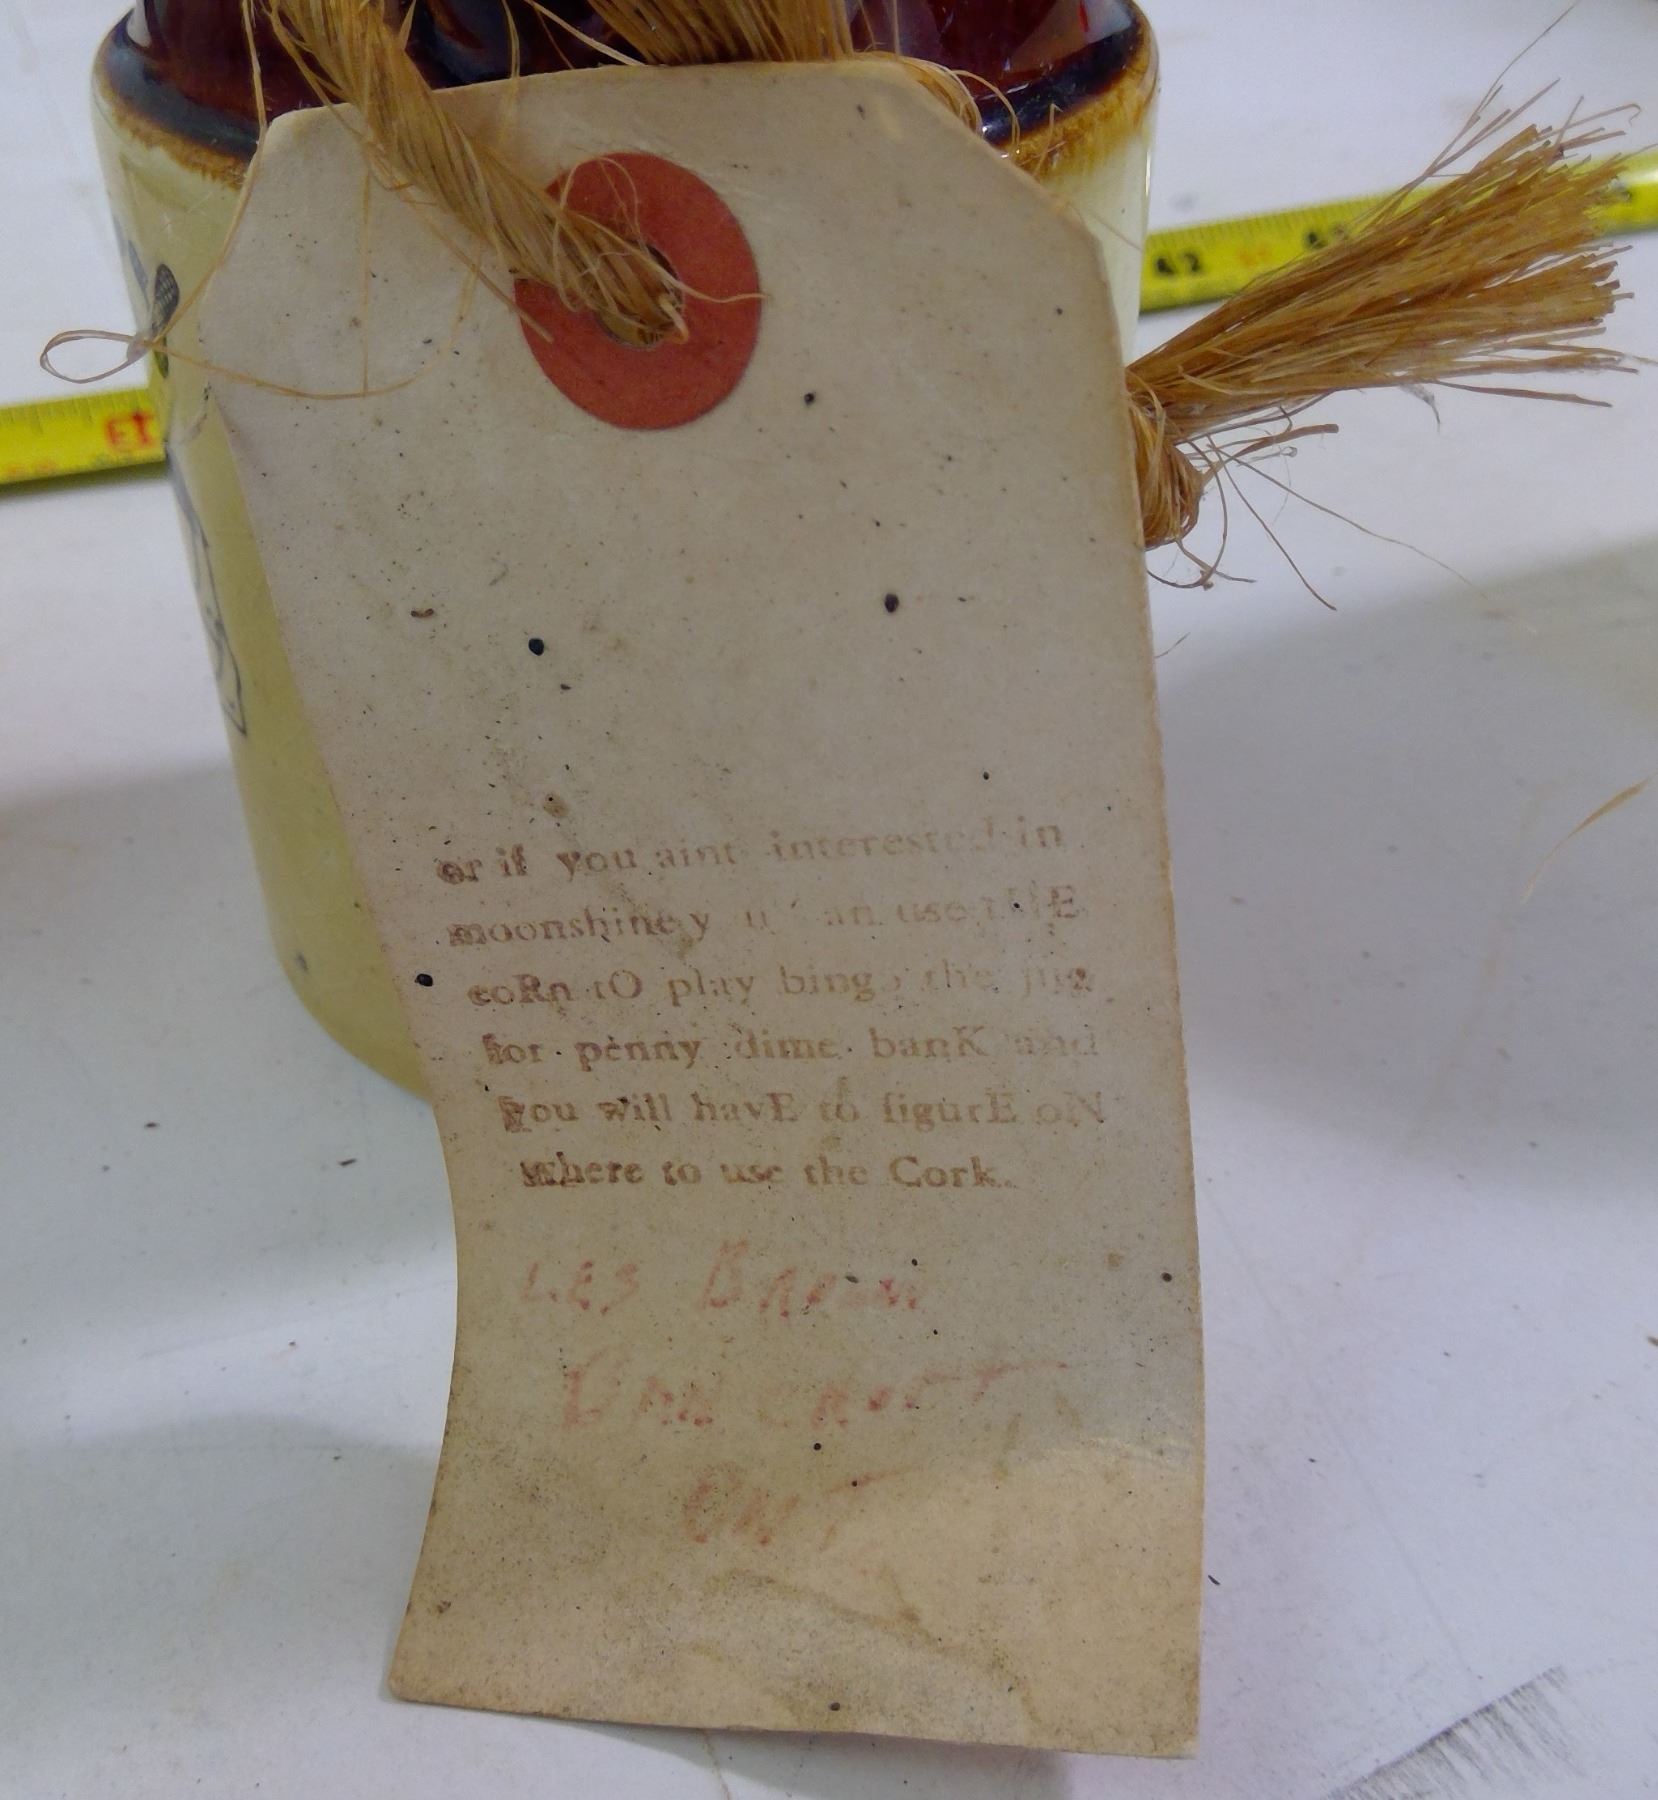 13
42
or if you aint interested in
moonshine y u an use tHE
coRn tO play bingo the jug
for penny dime banK and
you will havE to figurE oN
where to use the Cork.
LES BROWN
BANCROFT
ONT.